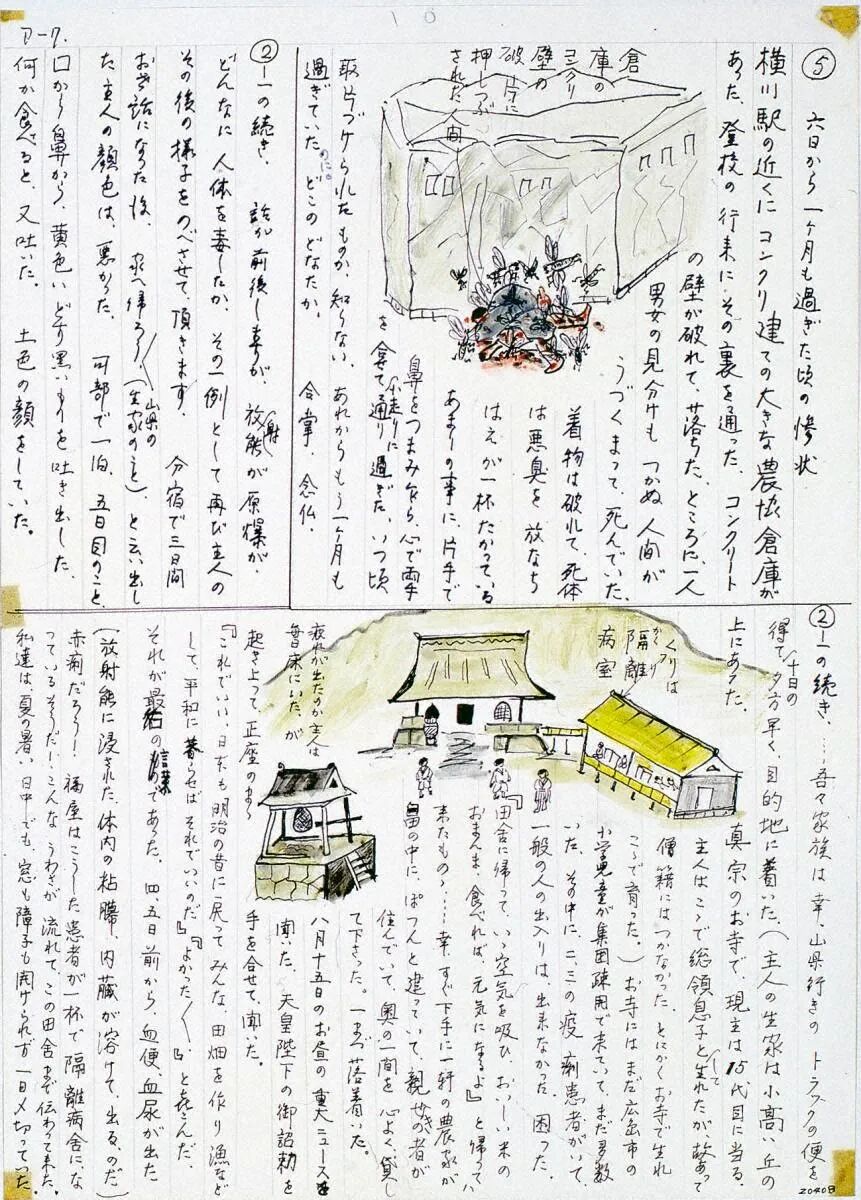 10
ア-7.
⑤ 六日から一ヶ月も過ぎた頃の惨状
横川駅の近くにコンクリ建ての大きな農協倉庫が
あった、登校の行来にその裏を通った、コンクリート
の壁が破れて、落ちた、ところに、一人
男女の見分けも つかぬ 人間が
うづくまって、死んでいた、
着物は破れて、死体
は悪臭を 放なち
はえが一杯たかっている
あまりの事に、片手で
鼻をつまみ乍ら、心で両手
を合せて、小走りに通り過ぎた、いつ頃
取片づけられたものか、知らない、あれからもう一ヶ月も
過ぎていたのに。どこのどなたか。 合掌、念仏、
倉庫の
コンクリ
壁の
破片に
押しつぶ
された人間
②-1の続き、 話が前後しますが、放射能が原爆が、
どんなに 人体を毒したか、その一例として再び主人の
その後の様子をのべさせて、頂きます、 分宿で三日間
お世話になった後、 家へ帰ろう〱(山県の生家のこと)、と云い出し
た主人の顔色は、悪かった、 可部で一泊、五日目のこと、
口から鼻から、黄色いどす黒いものを吐き出した、
何か食べると、又吐いた、 土色の顔をしていた。
②-1の続き、……吾々家族は幸、山県行きの トラックの便を
得て、十日の夕方早く、目的地に着いた、(主人の生家は小高い丘の
上にあった。
真宗のお寺で、現主は15代目に当る、
主人はこゝで総領息子として生れたが、故あって
僧籍にはつかなかった、とにかくお寺で生れ
こゝで育った、)お寺にはまだ広島市の
小学児童が集団疎開で来ていて、まだ多数
いた、その中に、二、三の疫痢患者がいて、
一般の人の出入りは、出来なかった、困った、
『田舎に帰って、いゝ空気を吸ひ、おいしい米の
おまんま、食べれば、元気になるよ』と帰って
来たものゝ……幸、すぐ下手に一軒の農家が
畠の中に、ぽつんと建っていて、親せきの者が
住んでいて、奥の一間を 心よく、貸し
て下さった。一まづ落着いた。
八月十五日のお昼の 重大ニュースを
聞いた、天皇陛下の御詔勅を
手を合せて、聞いた。
くりは
隔離
かくり
病室
疲れが出たのか主人は
毎日床にいた、が
起き上って、正座のまゝ
『これでいい、日本も明治の昔に戻って みんな、田畑を作り 漁など
して、平和に 暮らせば それでいいのだ』『よかった〱』と喜んだ、
それが最后の言葉であった、四、五日前から、血便、血尿が出た
(放射能に浸された、体内の粘膜、内臓が溶けて、出るのだ)
赤痢だろう! 福屋はこうした患者が一杯で隔離病舎にな
っているそうだ!こんな うわさが 流れて、この田舎まで伝わって来た、
私達は、夏の暑い、日中でも、窓も障子も開けられず 一日〆切っていた、